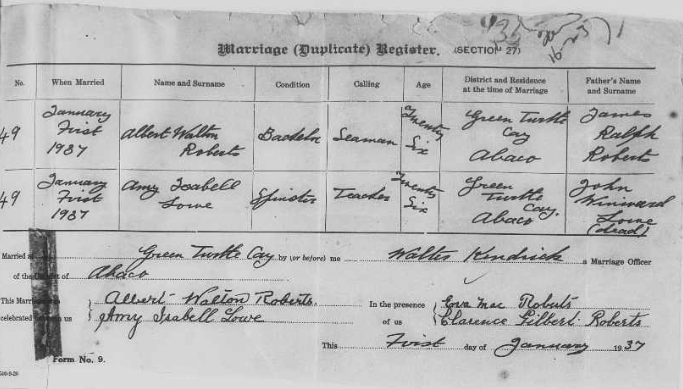 Marriage (Duplicate) Register. (SECTION 27)
No. When Married Name and Surname Condition Calling Age District and Residence at the time of Marriage Father's Name and Surname
49 January First 1937 Albert Walton Roberts Bachelor Seaman Twenty Six Green Turtle Cay Abaco James Ralph Roberts
49 January First 1937 Amy Isabell Lowe Spinster Teacher Twenty Six Green Turtle Cay. Abaco John Winward Lowe (dead)
Married at Green Turtle Cay by (or before) me Walter Kendrick a Marriage Officer
of the of Abaco
This Marriage Albert Walton Roberts In the presence Mae Roberts
celebrated us Amy Isabell Lowe of us Clarence Gilbert Roberts
This First day of January 1937
Form No. 9.